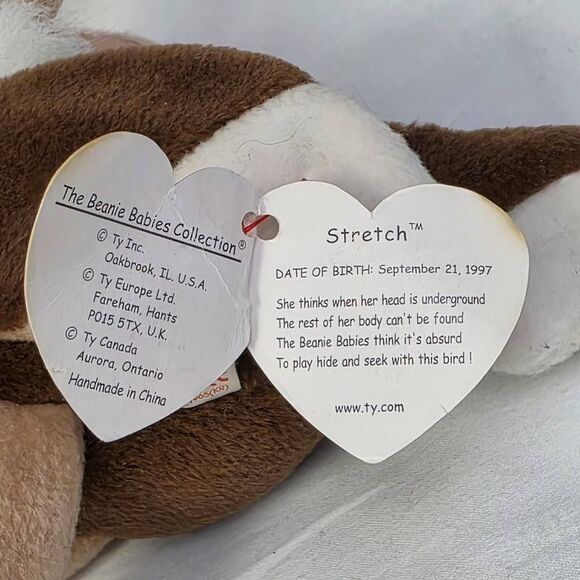 The Beanie Babies Collection®
© Ty Inc.
Oakbrook, IL. U.S.A.
© Ty Europe Ltd.
Fareham, Hants
PO15 5TX, U.K.
© Ty Canada
Aurora, Ontario
Handmade in China
Stretch™
DATE OF BIRTH: September 21, 1997
She thinks when her head is underground
The rest of her body can't be found
The Beanie Babies think it's absurd
To play hide and seek with this bird !
www.ty.com